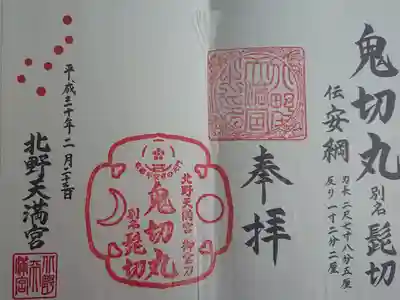 鬼切丸 別名 髭切
伝 安綱
刃長 二尺七寸八分五厘
反り 一寸二分二厘
奉拝
北野天満宮 御宝刀
鬼切丸
別名 髭切
平成三十年二月二十三日
北野天満宮